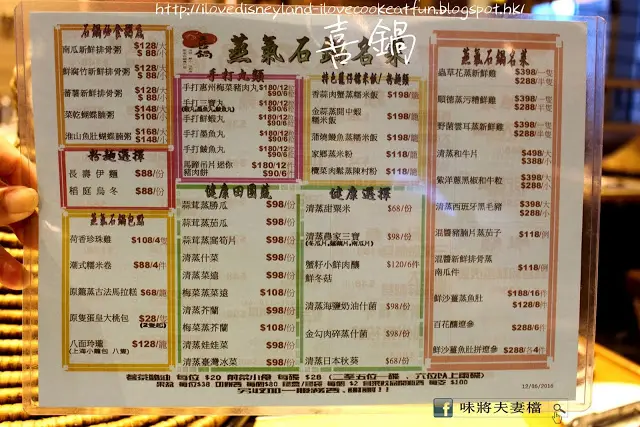 http://ilovedisneyland-ilovecookeatfun.blogspot.hk/
喜鍋
蒸氣石鍋名菜
南瓜新鮮排骨粥 $128/大 $ 88/小
鮮腐竹新鮮排骨粥 $128/大 $ 88/小
蕃薯新鮮排骨粥 $128/大 $ 88/小
菜乾蝴蝶腩粥 $148/大 $108/小
淮山魚肚蝴蝶腩粥 $168/大 $148/小
粉麵選擇
長壽伊麵 $88/份
稻庭烏冬 $88/份
蒸氣石鍋包點
荷香珍珠雞 $108/4隻
潮式糯米卷 $88/4件
原籠蒸古法馬拉糕 $68/籠
原隻蛋皇大桃包 $28/隻
(2隻起)
八面玲瓏 $128/籠
(上海小籠包 八隻)
手打丸類
手打惠州梅菜豬肉丸 $180/12 $90/6
手打三寶丸 $180/12 $90/6
手打鮮蝦丸 $180/12 $90/6
手打墨魚丸 $180/12 $90/6
手打鯪魚丸 $180/12 $90/6
馬蹄吊片迷你豬肉餅 $180/12件 $90/6件
健康田園蔬
蒜茸蒸勝瓜 $98/份
蒜茸蒸茄瓜 $98/份
蒜茸蒸萵筍片 $98/份
清蒸什菜 $98/份
清蒸菜遠 $98/份
梅菜蒸菜遠 $108/份
清蒸芥蘭 $98/份
梅菜蒸芥蘭 $108/份
清蒸娃娃菜 $98/份
清蒸臺灣冰菜 $98/份
特色籠仔糯米飯/粉麵類
香蒜肉蟹蒸糯米飯 $198/籠
金蒜蒸開中蝦糯米飯 $198/籠
蒲燒鰻魚蒸糯米飯 $198/籠
家鄉蒸米粉 $118/籠
欖菜肉鬆蒸陳村粉 $118/籠
健康選擇
清蒸甜粟米 $68/份
清蒸農家三寶 $98/份
蟹籽小鮮肉釀鮮冬菇 $120/6件
清蒸海鹽奶油什菌 $98/份
金勾肉碎蒸什菌 $98/份
清蒸日本秋葵 $68/份
蒸氣石鍋名菜
蟲草花蒸新鮮雞 $398/一隻 $288/半隻
順德蒸污糟鮮雞 $398/一隻 $288/半隻
野菌雲耳蒸新鮮雞 $398/一隻 $288/半隻
清蒸和牛片 $498/大 $358/小
紫洋蔥黑椒和牛粒 $398/大 $288/小
清蒸西班牙黑毛豬 $398/大 $288/小
混醬豬腩片蒸茄子 $118/例
混醬新鮮排骨蒸南瓜件 $118/例
鮮沙薑蒸魚肚 $188/16件 $128/8件
百花釀遼參 $288/6件
鮮沙薑魚肚拼遼參 $288/各4件
13/06/2016
味將夫妻檔